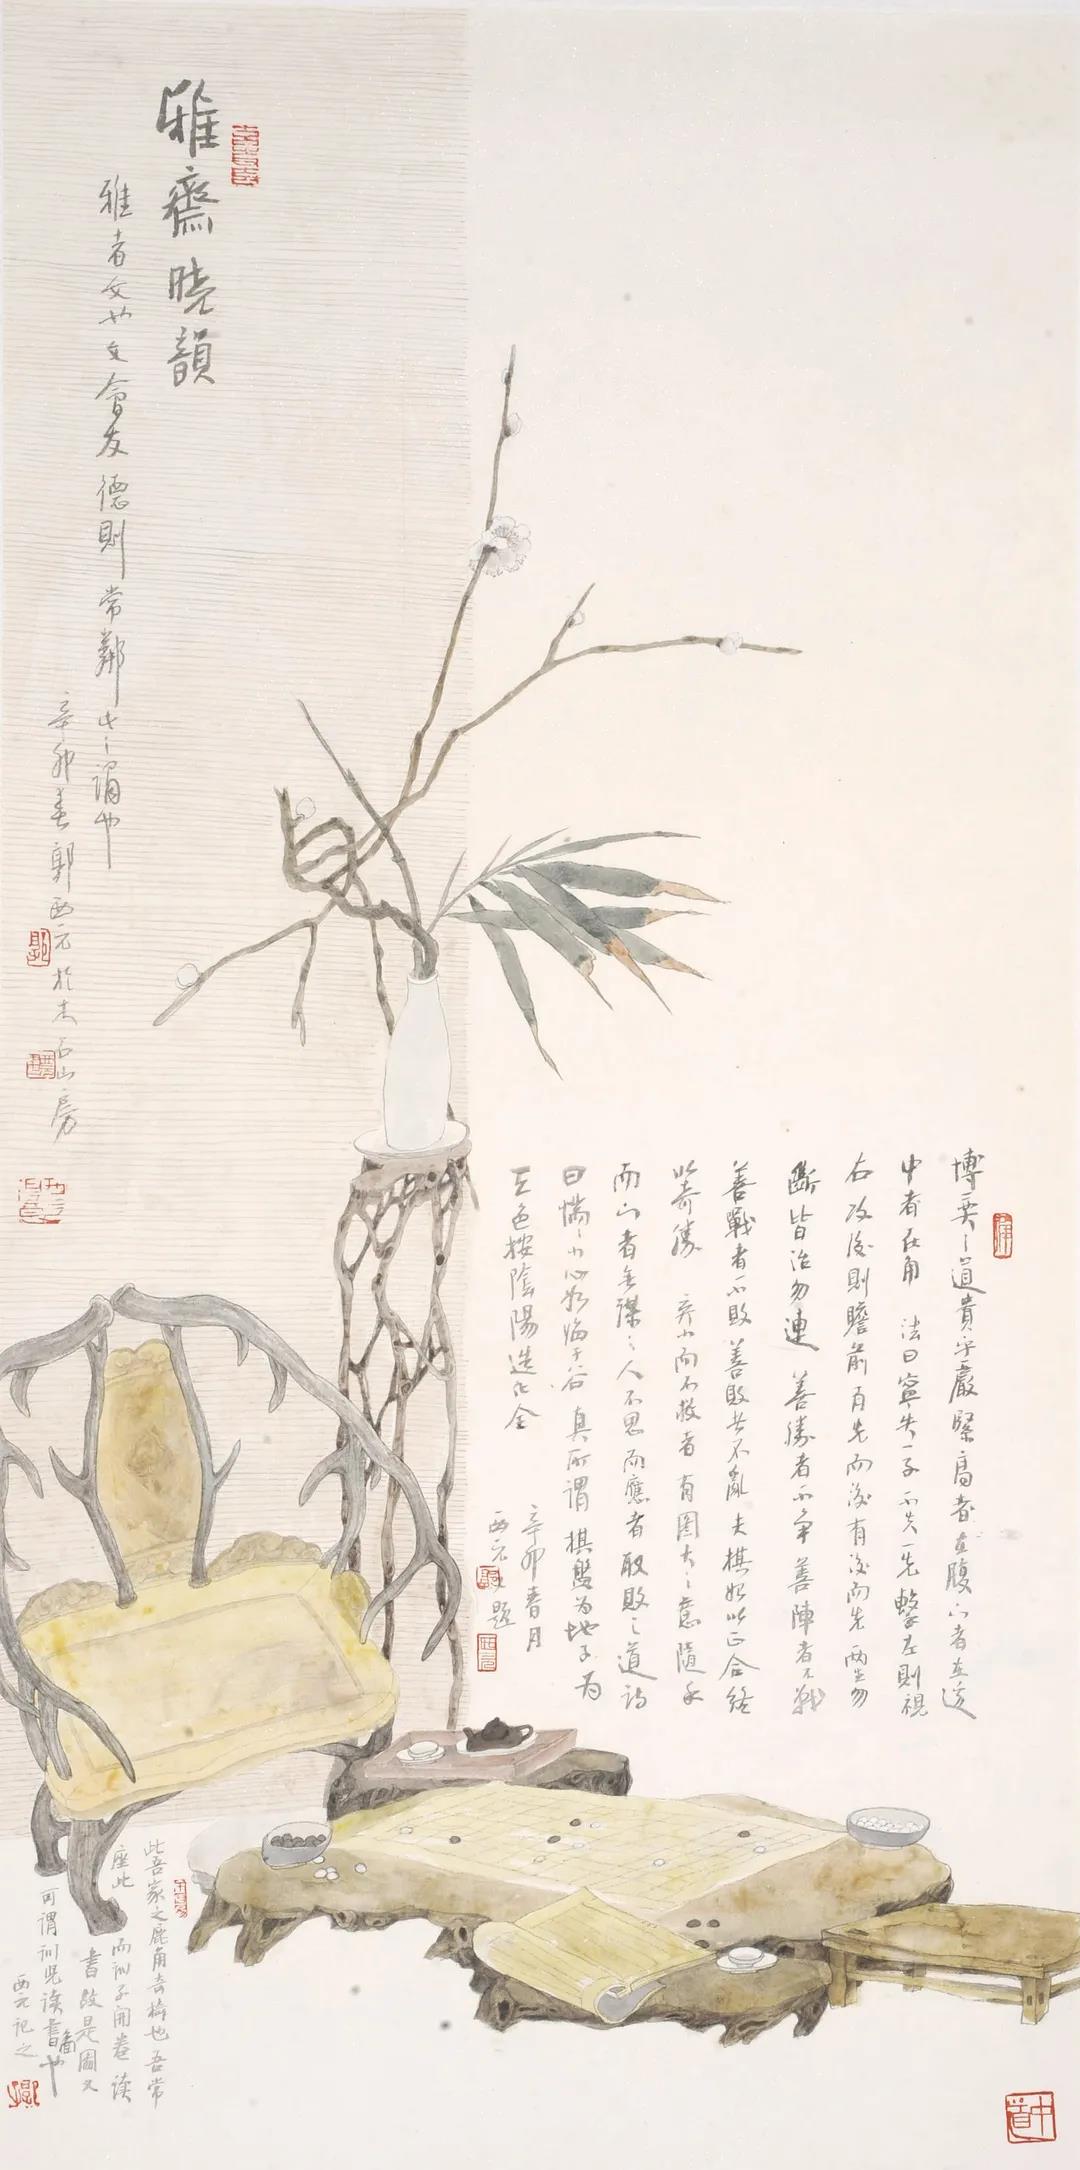 雅齋曉韻
雅者文也文會友德則常鄰此之謂也
辛卯春郭西元於木石山房
博弈之道貴乎嚴緊高者在腹下者在邊
中者在角 法曰寧失一子不失一先擊左則視
右攻後則瞻前有先而後有後而先兩生勿
斷皆活勿連 善勝者不爭善陣者不戰
善戰者不敗善敗者不亂夫棋始以正合終
以奇勝 弃小而不救者有圖大之意隨手
而下者無謀之人不思而應者取敗之道詩
曰惴惴小心如临于谷真所謂棋盤为地子为
天色按陰陽造化全
辛卯春月
西元題
此吾家之鹿角奇椅也吾常
座此 而训子開卷读
書故是圖又
可謂训児读書圖也
西元记之